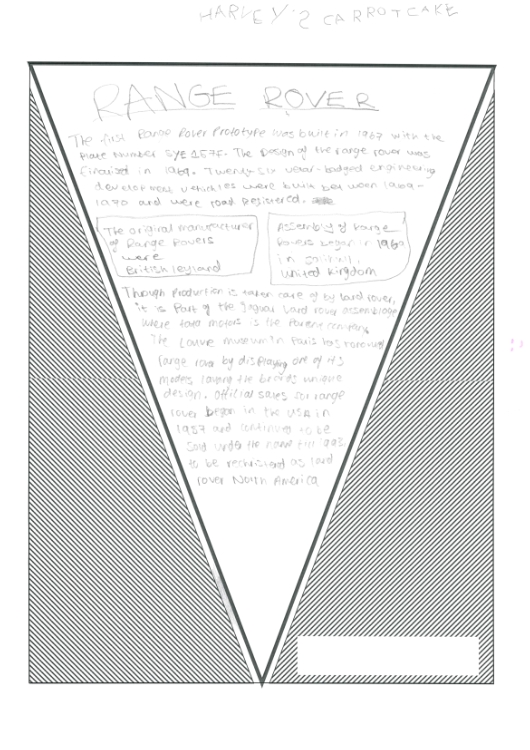 HARVEY'S CARROTCAKE
RANGE ROVER
The first Range Rover Prototype was built in 1967 with the
Plate number SYE 157F. The Design of the range rover was
finalised in 1969. Twenty-six velar-badged engineering
development vehicles were built between 1969-
1970 and were road registered.
The original manufacturer
of Range Rovers
were
British leyland
Assembly of Range
Rovers began in 1960
in solihull,
united kingdom
Though Production is taken care of by land rover,
it is Part of the Jaguar land rover assemblage
where tata motors is the Parent company
The Louvre museum in Paris has honoured
range rover by displaying one of its
models the brands unique
design. official sales for range
rover began in the USA in
1987 and continued to be
sold under the name till 1993
to be rechristened as land
rover North America